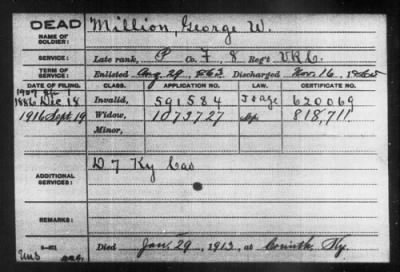 DEAD
NAME OF SOLDIER: Million, George W.
SERVICE: Late rank, P Co. F, 8 Reg't V.R.C.
TERM OF SERVICE: Enlisted Aug. 29, 1863 Discharged Nov. 16, 1865
DATE OF FILING. CLASS. APPLICATION NO. LAW. CERTIFICATE NO.
1907 1
1886 Dec 18 Invalid, 591584 620069
1916 Sept 19 Widow, 1073727 818,711
Minor,
ADDITIONAL SERVICES: D 7 Ky Cav
REMARKS:
Died Jan. 29, 1913, at Corinth, Ky.